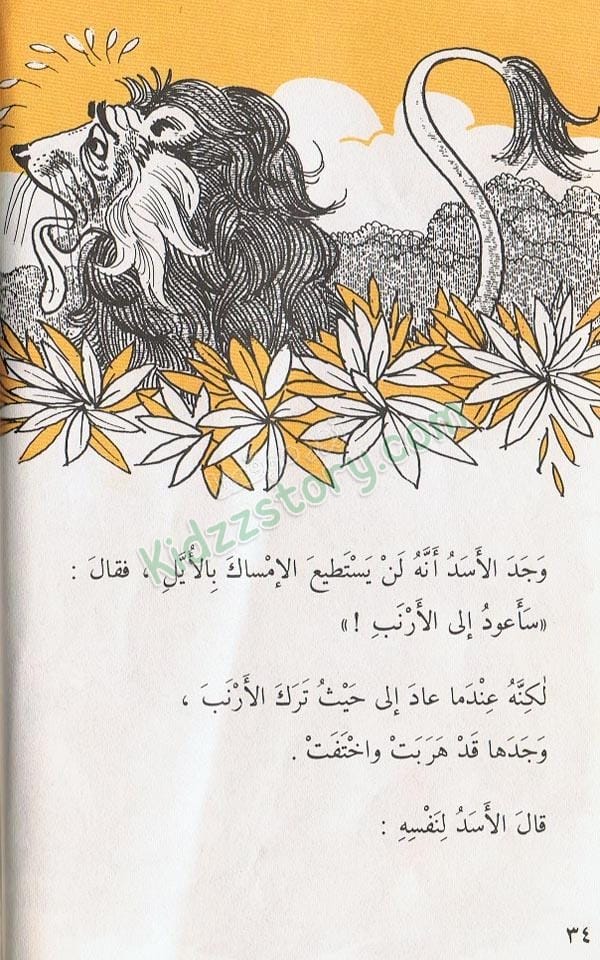 Kidzzstory.com
وَجَدَ الأَسَدُ أَنَّهُ لَنْ يَسْتَطيعَ الإِمْساكَ بِالأُيَّلِ ، فقالَ :
«سَأَعودُ إلى الأَرْنَبِ !»
لٰكِنَّهُ عِنْدَما عادَ إلى حَيْثُ تَرَكَ الأَرْنَبَ ،
وَجَدَها قَدْ هَرَبَتْ واخْتَفَتْ .
قالَ الأَسَدُ لِنَفْسِهِ :
٣٤